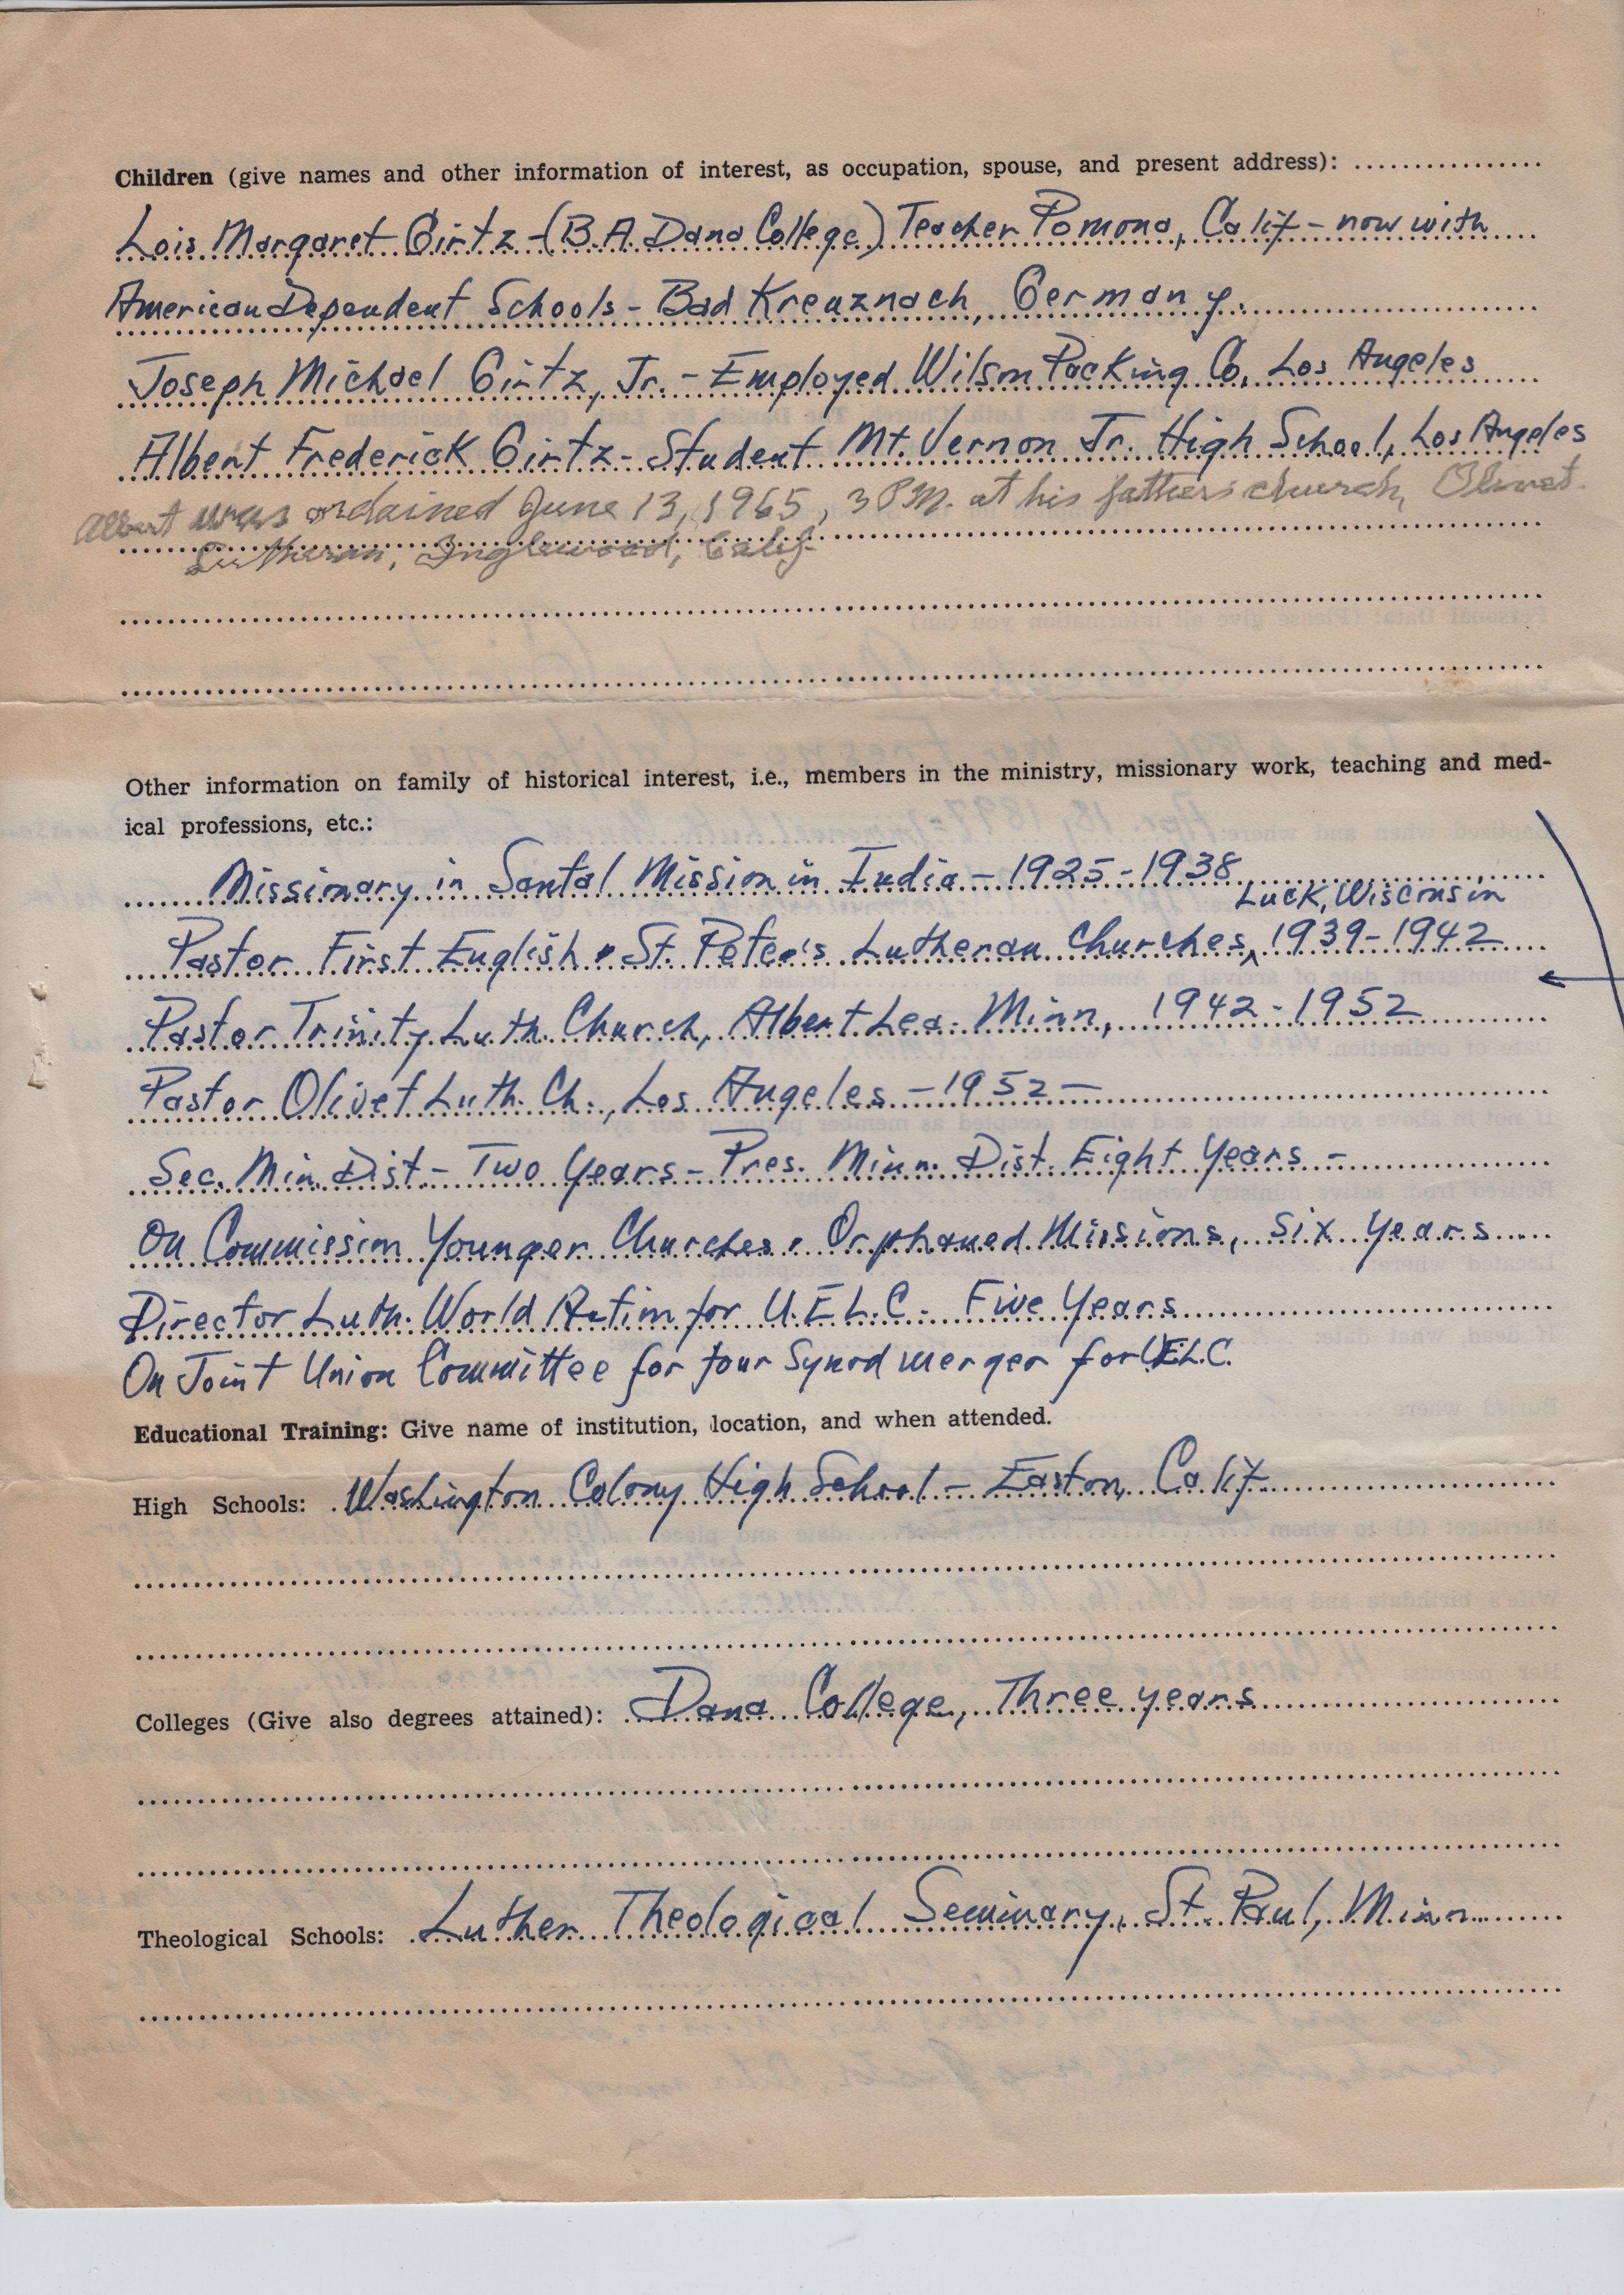 Children (give names and other information of interest, as occupation, spouse, and present address):
Lois Margaret Girtz - (B.A. Dana College) Teacher Pomona, Calif - now with
American Dependent Schools - Bad Kreuznach, Germany.
Joseph Michael Girtz, Jr. - Employed Wilson Packing Co, Los Angeles
Albert Frederick Girtz - Student Mt. Vernon Jr. High School, Los Angeles
Albert was ordained June 13, 1965, 3 P.M. at his father's church, Olivet
Lutheran, Inglewood, Calif.
Other information on family of historical interest, i.e., members in the ministry, missionary work, teaching and med-
ical professions, etc.:
Missionary in Santal Mission in India - 1925-1938
Luck, Wisconsin
Pastor First English & St. Peter's Lutheran Churches, ^ 1939-1942
Pastor Trinity Luth. Church, Albert Lea Minn, 1942-1952
Pastor Olivet Luth. Ch., Los Angeles - 1952 -
Sec. Min. Dist. - Two Years - Pres. Minn. Dist. Eight Years -
On Commission Younger Churches & Orphaned Missions, Six Years
Director Luth. World Action for U.E.L.C. Five Years
On Joint Union Committee for four Synod merger for UELC.
Educational Training: Give name of institution, location, and when attended.
High Schools: Washington Colony High School - Easton, Calif
Colleges (Give also degrees attained): Dana College, Three years
Theological Schools: Luther Theological Seminary, St. Paul, Minn